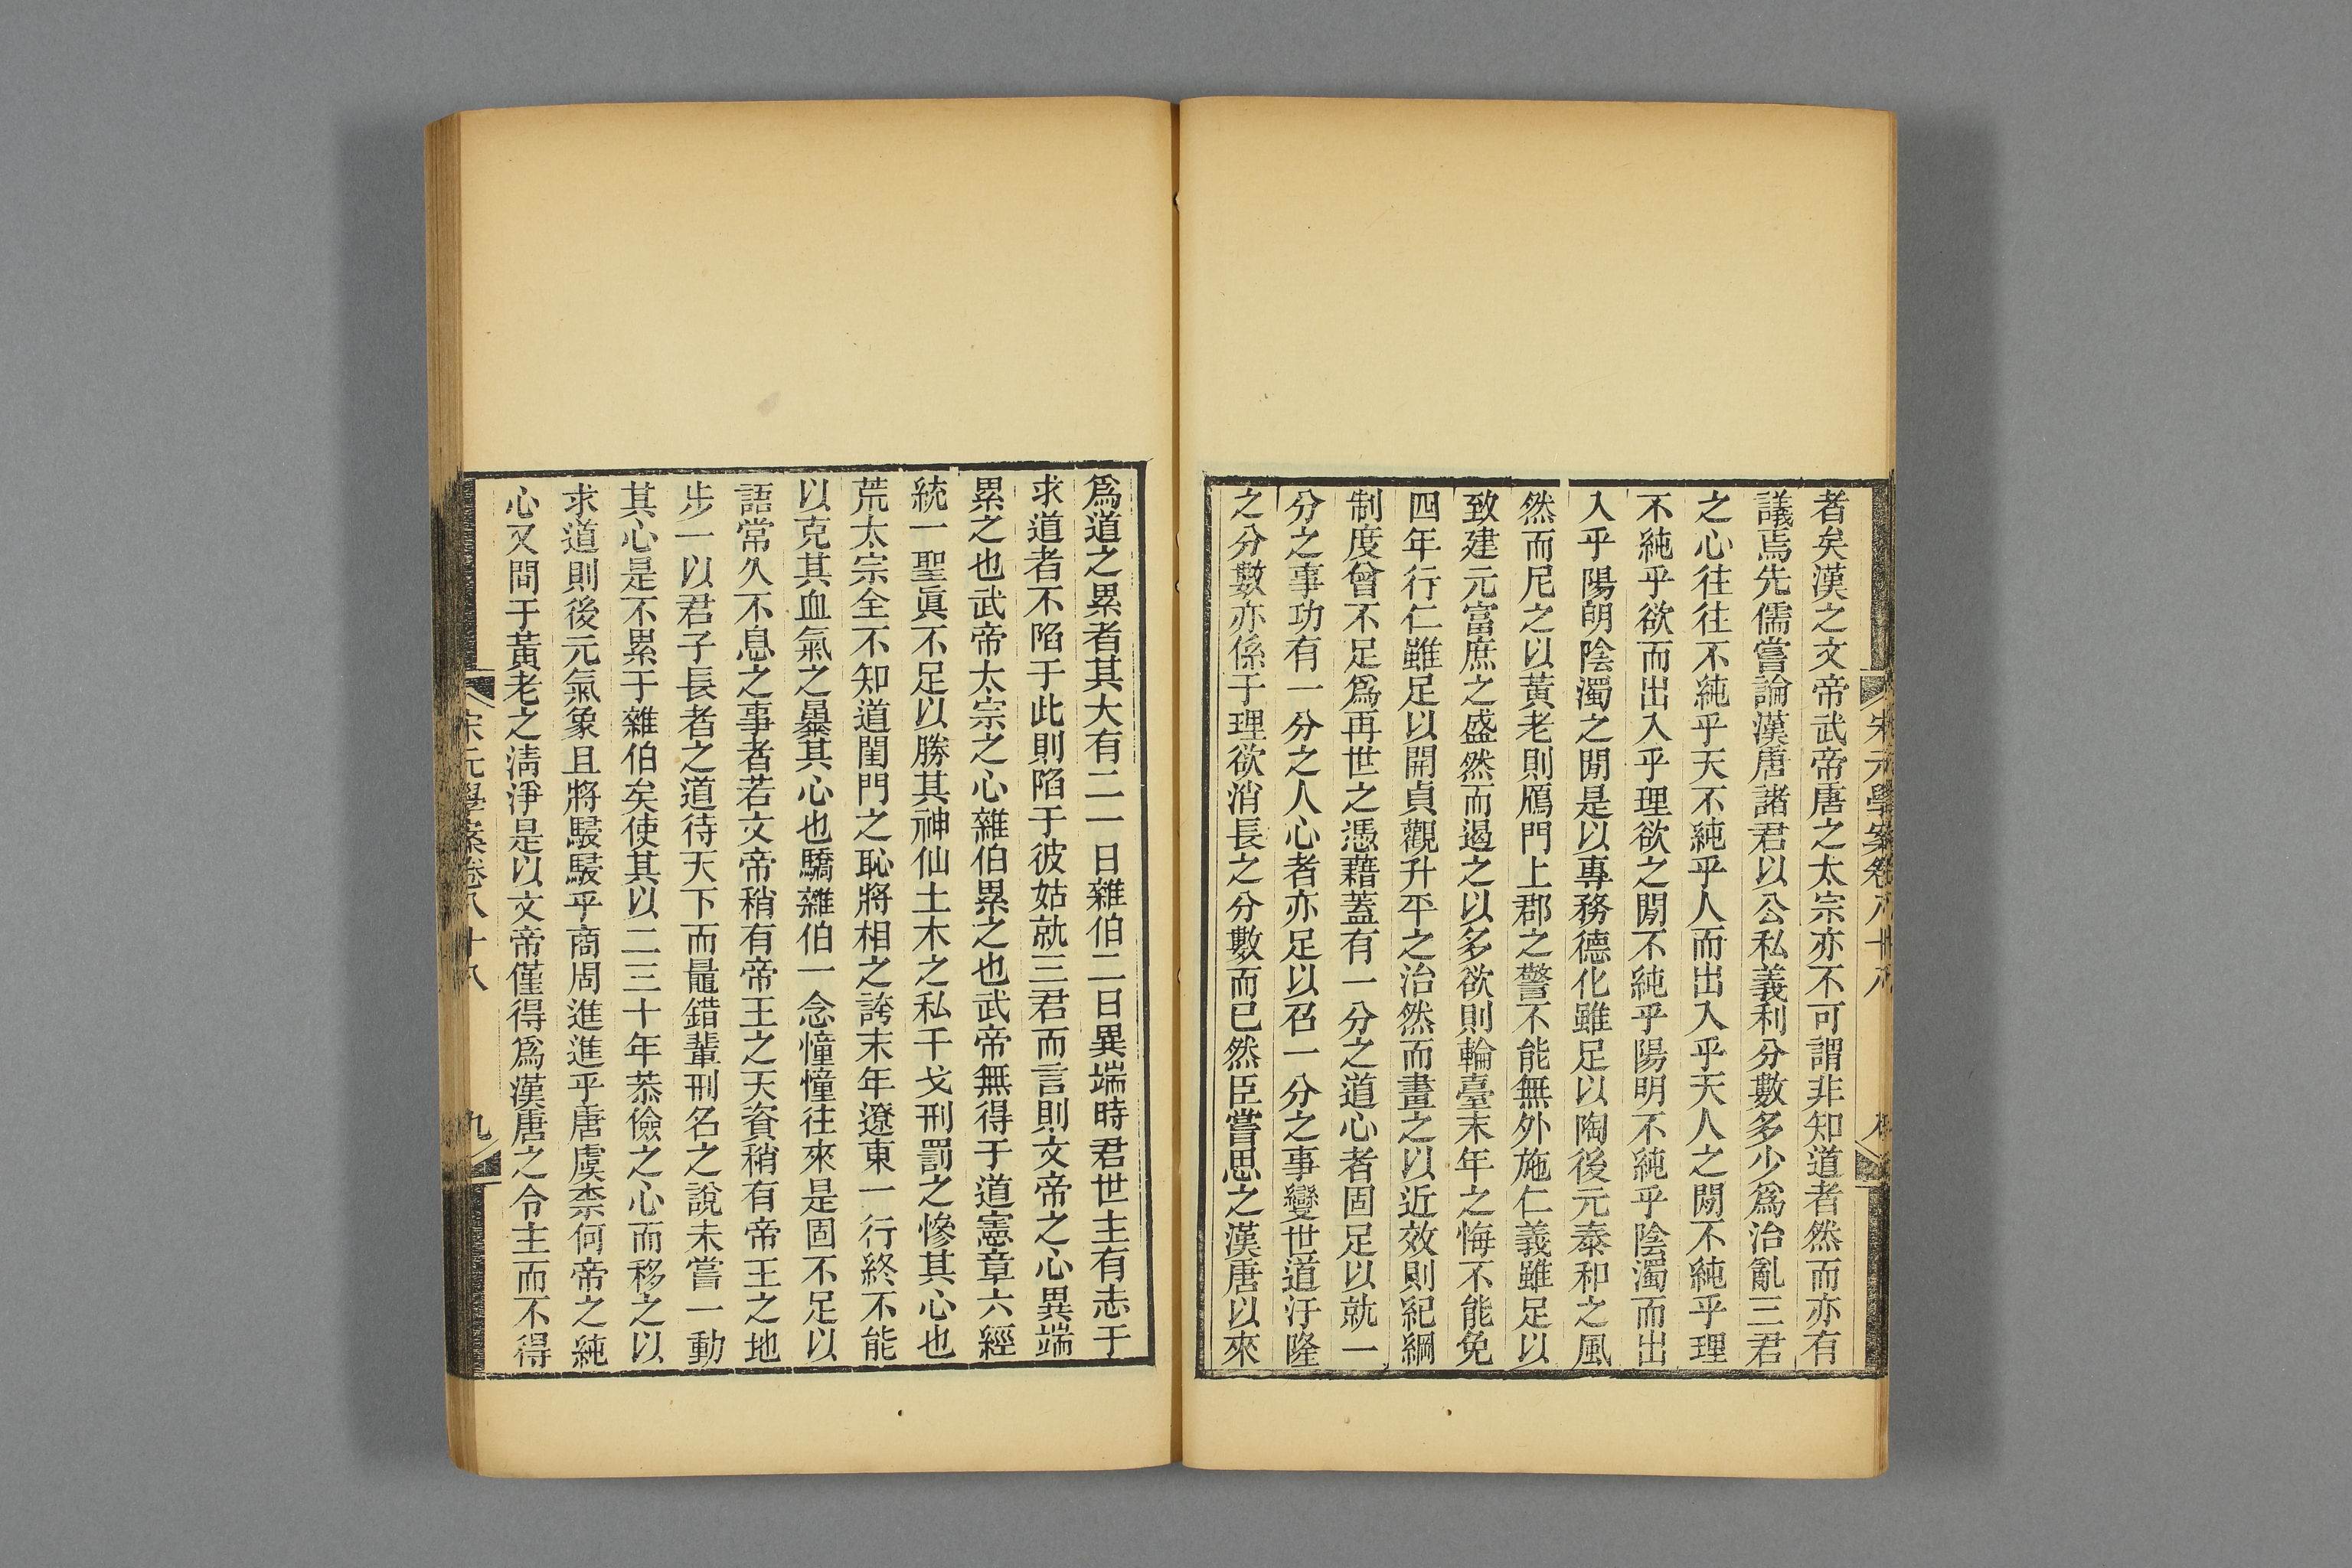 宋元學案卷八十八
者矣漢之文帝武帝唐之太宗亦不可謂非知道者然而亦有
議焉先儒嘗論漢唐諸君以公私義利分數多少爲治亂三君
之心往往不純乎天不純乎人而出入乎天人之閒不純乎理
不純乎欲而出入乎理欲之閒不純乎陽明不純乎陰濁而出
入乎陽明陰濁之閒是以專務德化雖足以陶後元泰和之風
然而尼之以黃老則鴈門上郡之警不能無外施仁義雖足以
致建元富庶之盛然而遏之以多欲則輪臺末年之悔不能免
四年行仁雖足以開貞觀升平之治然而畫之以近效則紀綱
制度曾不足爲再世之憑藉蓋有一分之道心者固足以就一
分之事功有一分之人心者亦足以召一分之事變世道汙隆
之分數亦係于理欲消長之分數而已然臣嘗思之漢唐以來
爲道之累者其大有二一曰雜伯二曰異端時君世主有志于
求道者不陷于此則陷于彼姑就三君而言則文帝之心異端
累之也武帝太宗之心雜伯累之也武帝無得于道憲章六經
統一聖眞不足以勝其神仙土木之私干戈刑罰之慘其心也
荒太宗全不知道閨門之恥將相之誇末年遼東一行終不能
以克其血氣之暴其心也驕雜伯一念憧憧往來是固不足以
語常久不息之事者若文帝稍有帝王之天資稍有帝王之地
步一以君子長者之道待天下而鼂錯輩刑名之說未嘗一動
其心是不累于雜伯矣使其以二三十年恭儉之心而移之以
求道則後元氣象且將駸駸乎商周進進乎唐虞柰何帝之純
心又間于黃老之淸淨是以文帝僅得爲漢唐之令主而不得
宋元學案卷八十八
九